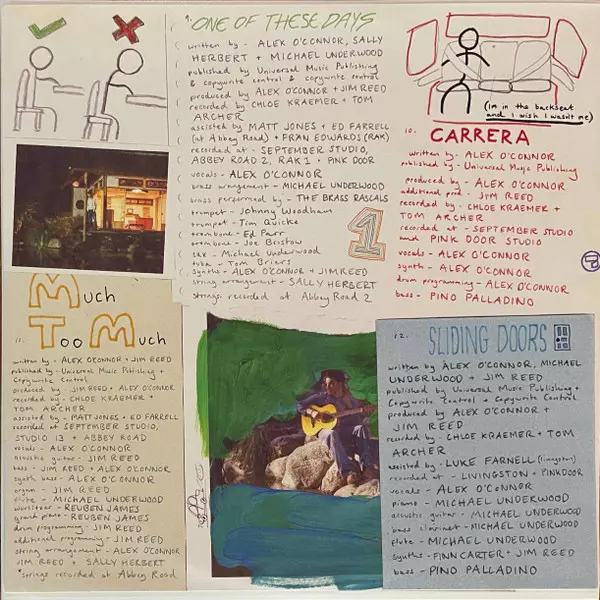 9. ONE OF THESE DAYS
written by - ALEX O'CONNOR, SALLY
HERBERT + MICHAEL UNDERWOOD
published by Universal Music Publishing
& copywrite control & copywrite control
produced by ALEX O'CONNOR + JIM REED
recorded by CHLOE KRAEMER + TOM
ARCHER
assisted by MATT JONES + ED FARRELL
(at Abbey Road) + FRAN EDWARDS (RAK)
recorded at - SEPTEMBER STUDIO,
ABBEY ROAD 2, RAK 1 + PINK DOOR
vocals - ALEX O'CONNOR
brass arrangement - MICHAEL UNDERWOOD
brass performed by - THE BRASS RASCALS
trumpet - Johnny Woodham
trumpet - Tim Quicke
trombone - Ed Parr
trombone - Joe Bristow
sax - Michael Underwood
tuba - Tom Briers
synths - ALEX O'CONNOR + JIM REED
string arrangement - SALLY HERBERT
strings recorded at Abbey Road 2
1
(im in the backseat
and I wish I wasn't me)
10. CARRERA
written by - ALEX O'CONNOR
published by - Universal Music Publishing
produced by - ALEX O'CONNOR
additional prod. - JIM REED
recorded by - CHLOE KRAEMER +
TOM ARCHER
recorded at - SEPTEMBER STUDIO
and PINK DOOR STUDIO
vocals - ALEX O'CONNOR
synth - ALEX O'CONNOR
drum programming - ALEX O'CONNOR
bass - PINO PALLADINO
Much
11. Too Much
written by - ALEX O'CONNOR + JIM REED
published by - Universal Music Publishing +
Copywrite Control
produced by - JIM REED + ALEX O'CONNOR
recorded by - CHLOE KRAEMER +
TOM ARCHER
assisted by - MATT JONES + ED FARRELL
recorded at SEPTEMBER STUDIO,
STUDIO 13 + ABBEY ROAD
vocals - ALEX O'CONNOR
acoustic guitar - JIM REED
bass - JIM REED + ALEX O'CONNOR
synth bass - ALEX O'CONNOR
organ - JIM REED
flute - MICHAEL UNDERWOOD
wurlitzer - REUBEN JAMES
grand piano - REUBEN JAMES
drum programming - JIM REED
additional programming - JIM REED
string arrangement - ALEX O'CONNOR
JIM REED + SALLY HERBERT
*strings recorded at Abbey Road
12. SLIDING DOORS
written by ALEX O'CONNOR, MICHAEL
UNDERWOOD + JIM REED
published by Universal Music Publishing +
Copywrite Control + Copywrite Control
produced by ALEX O'CONNOR +
JIM REED
recorded by - CHLOE KRAEMER + TOM
ARCHER
assisted by - LUKE FARNELL (livingston)
recorded at - LIVINGSTON + PINK DOOR
vocals - ALEX O'CONNOR
piano - MICHAEL UNDERWOOD
acoustic guitar - MICHAEL UNDERWOOD
bass clarinet - MICHAEL UNDERWOOD
flute - MICHAEL UNDERWOOD
synths - FINN CARTER + JIM REED
bass - PINO PALLADINO